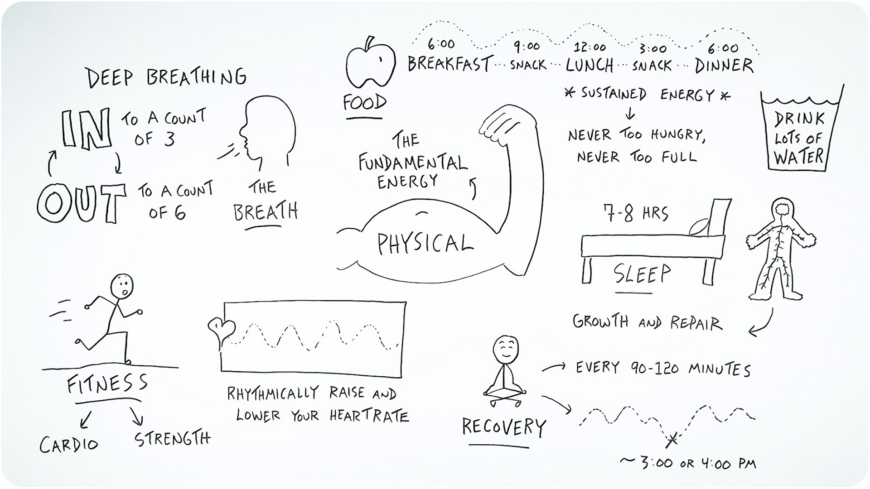 DEEP BREATHING
IN
TO A COUNT
OF 3
OUT
TO A COUNT
OF 6
THE
BREATH
FOOD
6:00
9:00
12:00
3:00
6:00
BREAKFAST
SNACK
LUNCH
SNACK
DINNER
* SUSTAINED ENERGY *
NEVER TOO HUNGRY,
NEVER TOO FULL
DRINK
LOTS OF
WATER
THE
FUNDAMENTAL
ENERGY
PHYSICAL
7-8 HRS
SLEEP
GROWTH AND REPAIR
FITNESS
CARDIO
STRENGTH
RHYTHMICALLY RAISE AND
LOWER YOUR HEARTRATE
RECOVERY
EVERY 90-120 MINUTES
~ 3:00 OR 4:00 PM